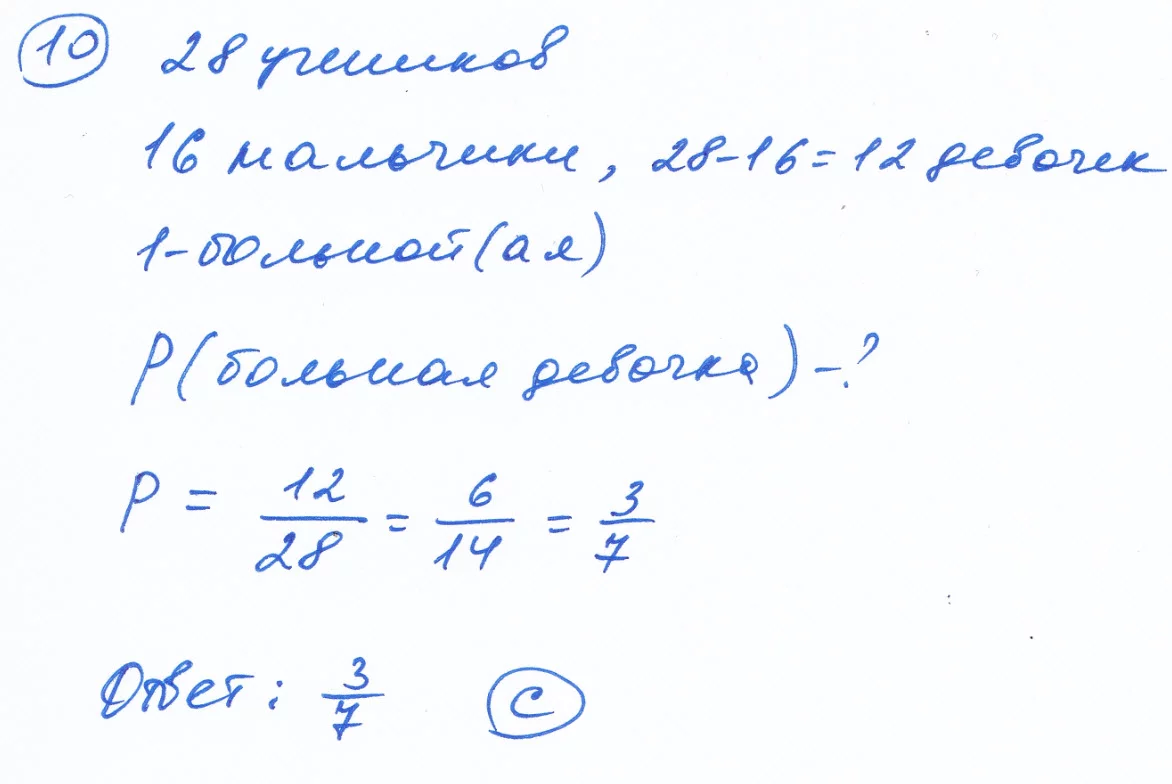 10 28 учеников
16 мальчики, 28-16=12 девочек
1-больной(ая)
P(больная девочка)-?
P = 12/28 = 6/14 = 3/7
Ответ: 3/7 C